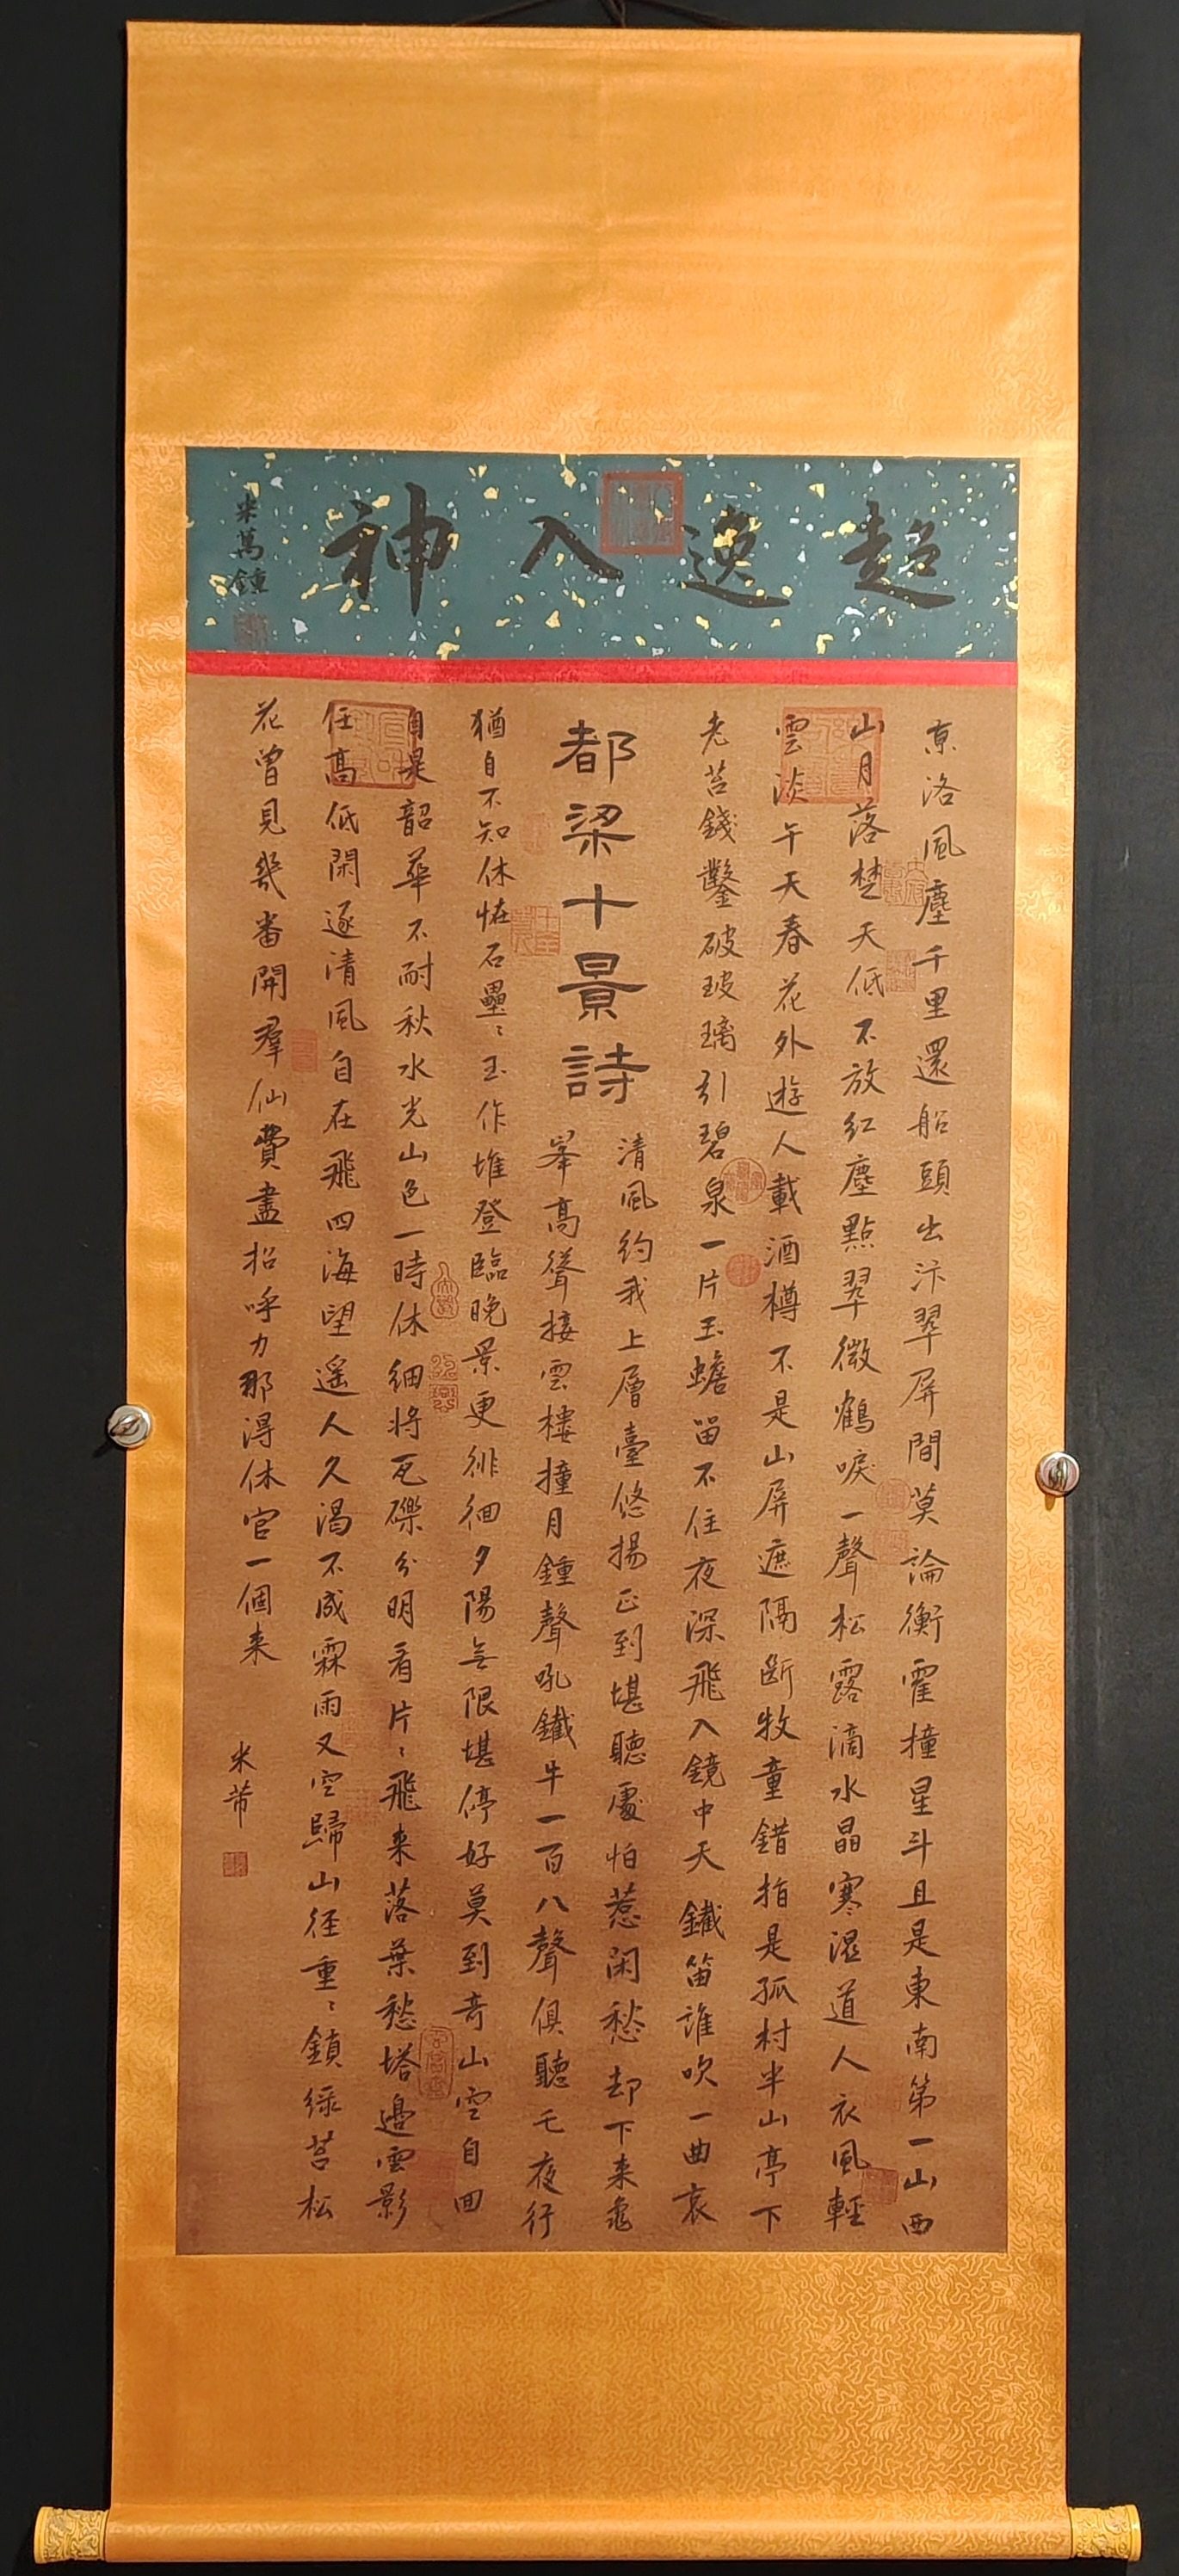 超逸入神
米萬鍾
京洛風塵千里還船頭出汴翠屏間莫論衡霍撞星斗且是東南第一山西
山月落楚天低不放紅塵點翠微鶴唳一聲松露滴水晶寒濕道人衣風輕
雲淡午天春花外遊人載酒樽不是山屏遮隔斷牧童錯指是孤村半山亭下
老苔錢鑿破玻璃引碧泉一片玉蟾留不住夜深飛入鏡中天鐵笛誰吹一曲哀
都梁十景詩
清風約我上層臺悠揚正到堪聽處怕惹閑愁却下來龜
峯高聳接雲樓撞月鐘聲吼鐵牛一百八聲俱聽乇夜行
猶自不知休恠石壘〻玉作堆登臨晚景更徘徊夕陽無限堪停好莫到奇山空自回
自是韶華不耐秋水光山色一時休細將瓦礫分明看片〻飛来落葉愁塔邊雲影
任高低閑逐清風自在飛四海望遥人久渴不成霖雨又空歸山径重〻鎖緑苔松
花曾見幾番開羣仙費盡招呼力那得休官一個来
米芾